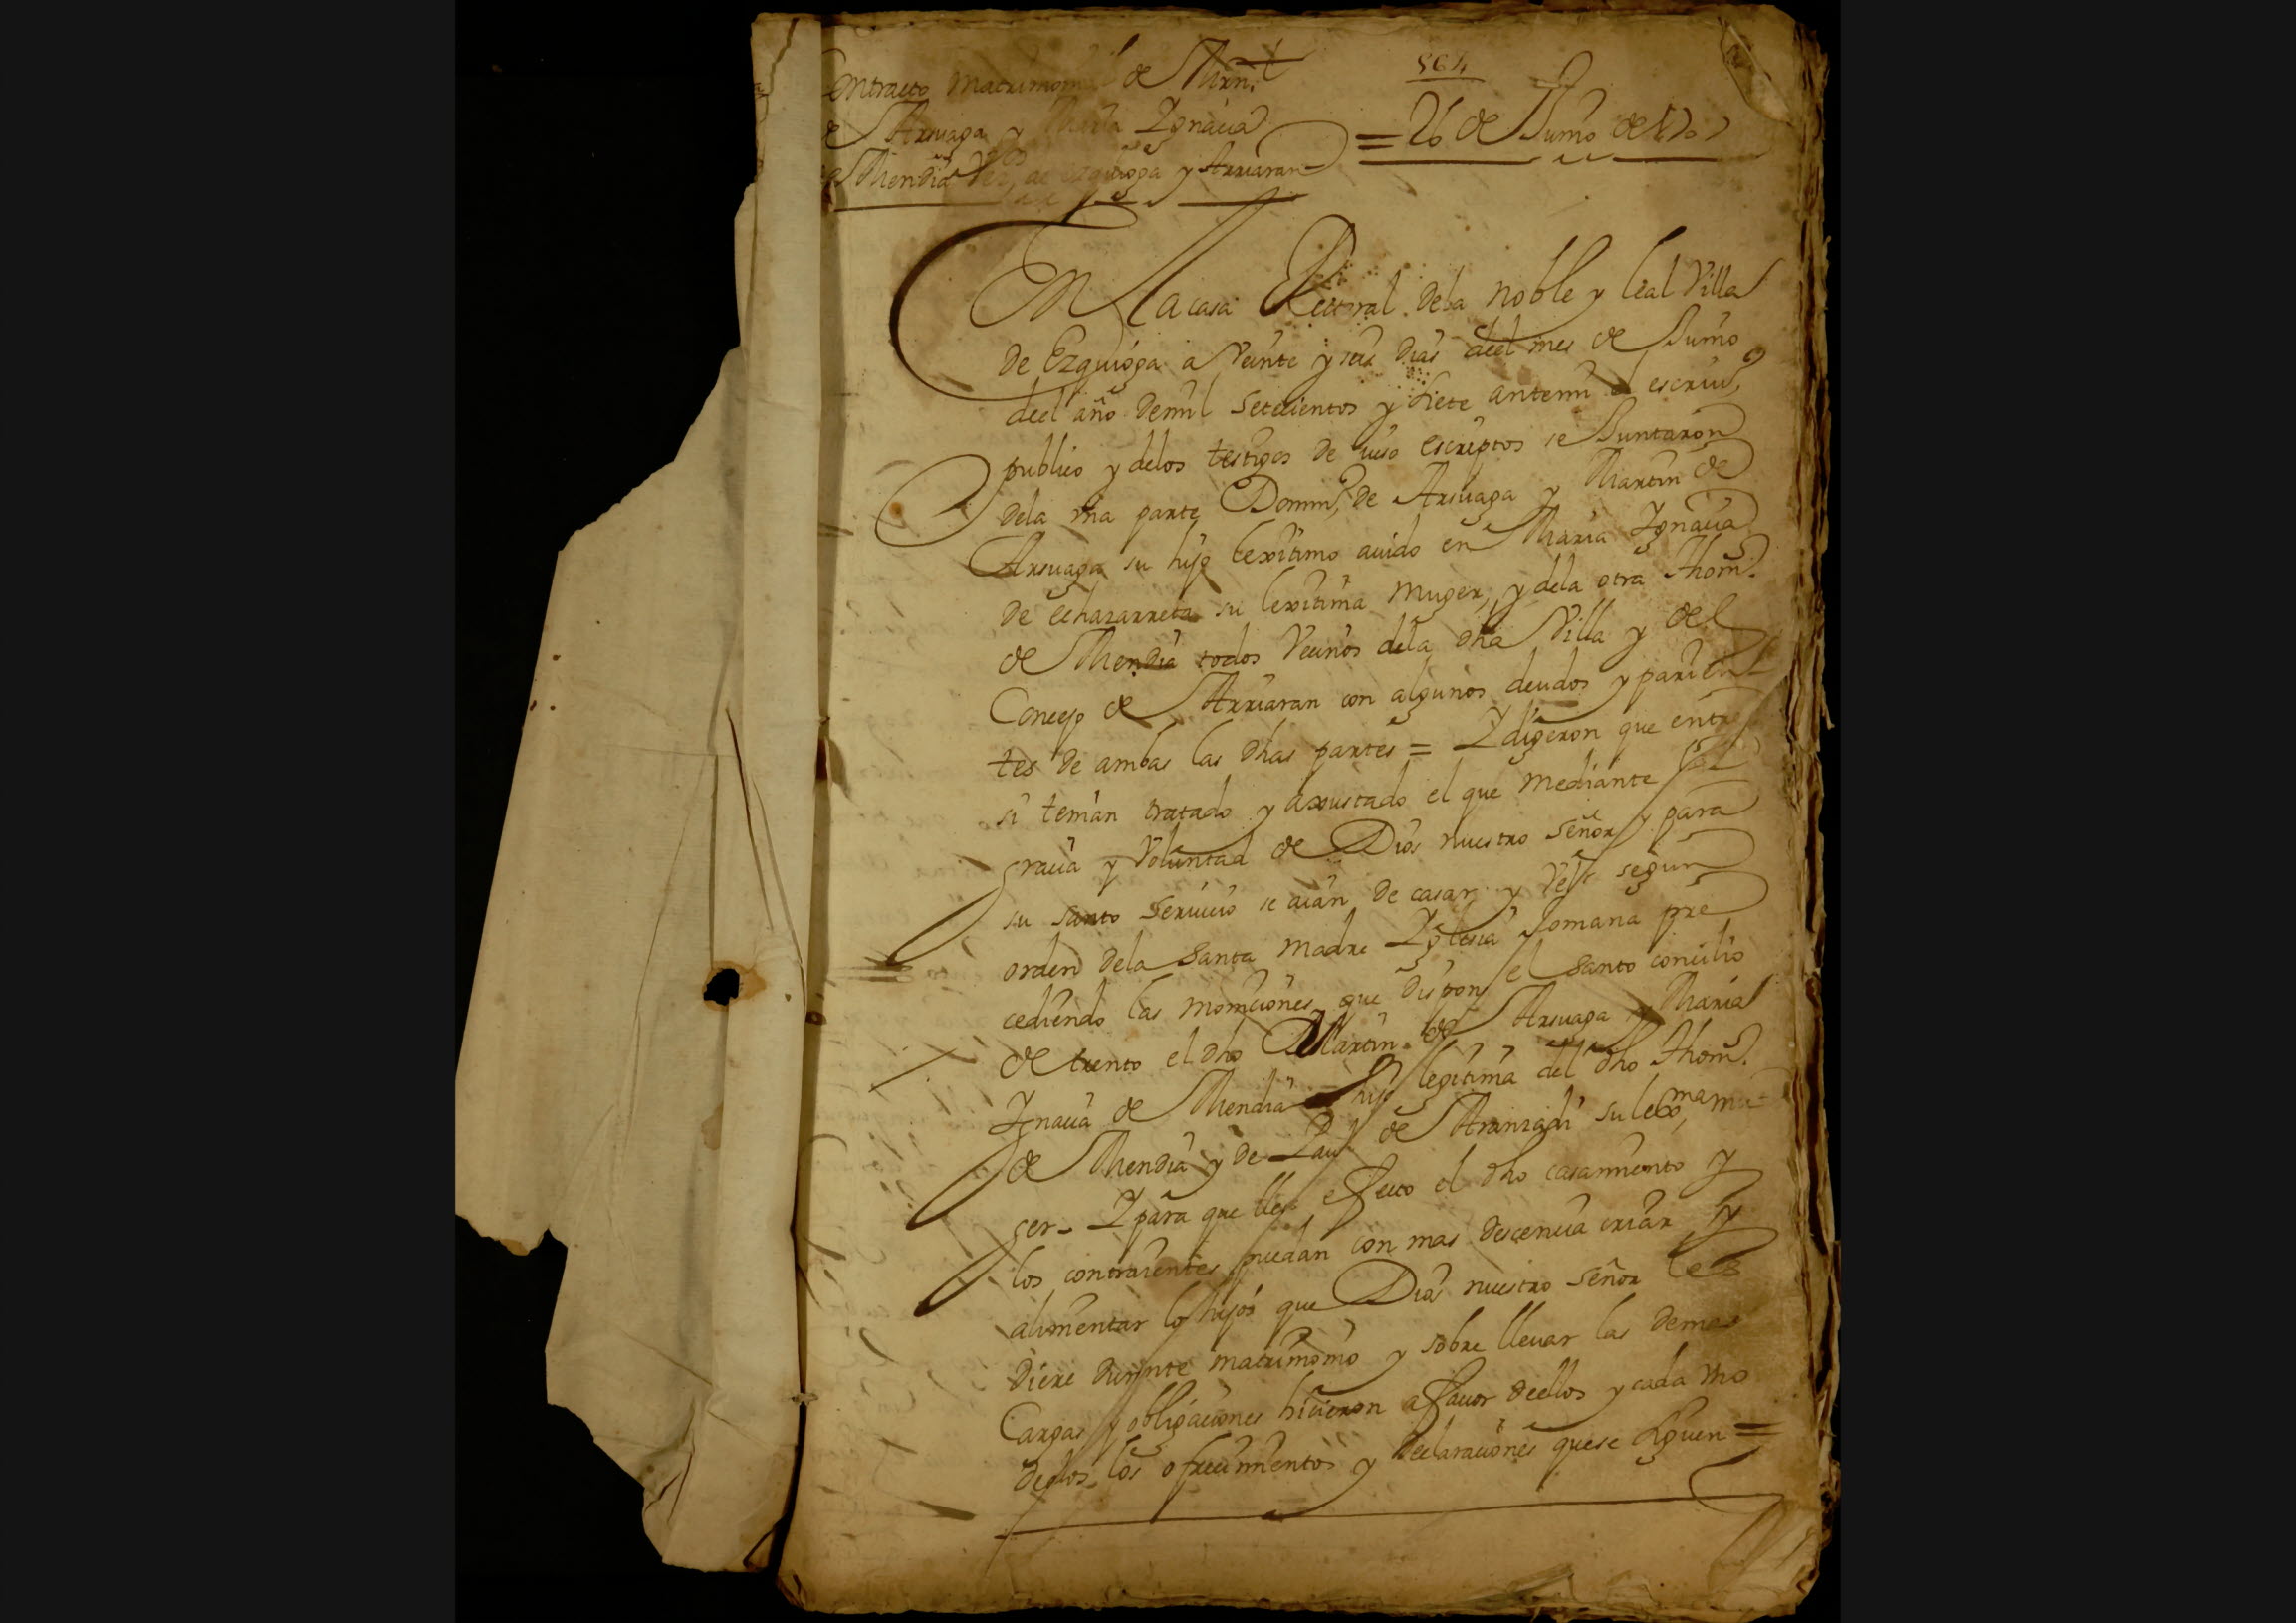 Contracto Matrimonial de Mrn.
564
de Arsuaga y Maria Ygnaçia
= 26 de Junio de 1707
de Mendia Vez.os de Ezquioga y Arriaran
En la casa Rectoral de la noble y leal Villa
de Ezquioga a Veinte y seis dias deel mes de Junio
deel año demil setecientos y siete antemi el escriu.o
publico y delos testigos de iuso escriptos se Juntaron
dela vna parte Domin.o de Arsuaga y Martin de
Arsuaga su hijo lexitimo auido en Maria Ygnaçia
de echazarreta su lexitima Muger, y dela otra Thom.
de Mendia todos Veçinos dela dha Villa y del
Conçejo de Arriaran con algunos deudos y parien
tes de ambas las dhas partes = Y digeron que entre
si tenian tratado y axustado el que Mediante la
graçia y Voluntad de Dios nuestro señor y para
su santo Seruiçio se aian de casar y Velar segun
orden dela Santa Madre Yglesia Romana pre
cediendo las moniçiones que dispone el Santo conçilio
de trento el dho Martin de Arsuaga y Maria
Ygnaçia de Mendia hija legitima del dho Thom.
de Mendia y de de Aranzadi su lexma mu
ger = Y para que lleue efecto el dho casamiento y
los contraientes puedan con mas desçençia criar y
alimentar los hijos que Dios nuestro señor les
diere durante matrimonio y sobre lleuar las demas
Cargas y obligaçiones hiçieron a fauor deellos y cada vno
deellos los ofreçimientos y declaraçiones quese siguen =